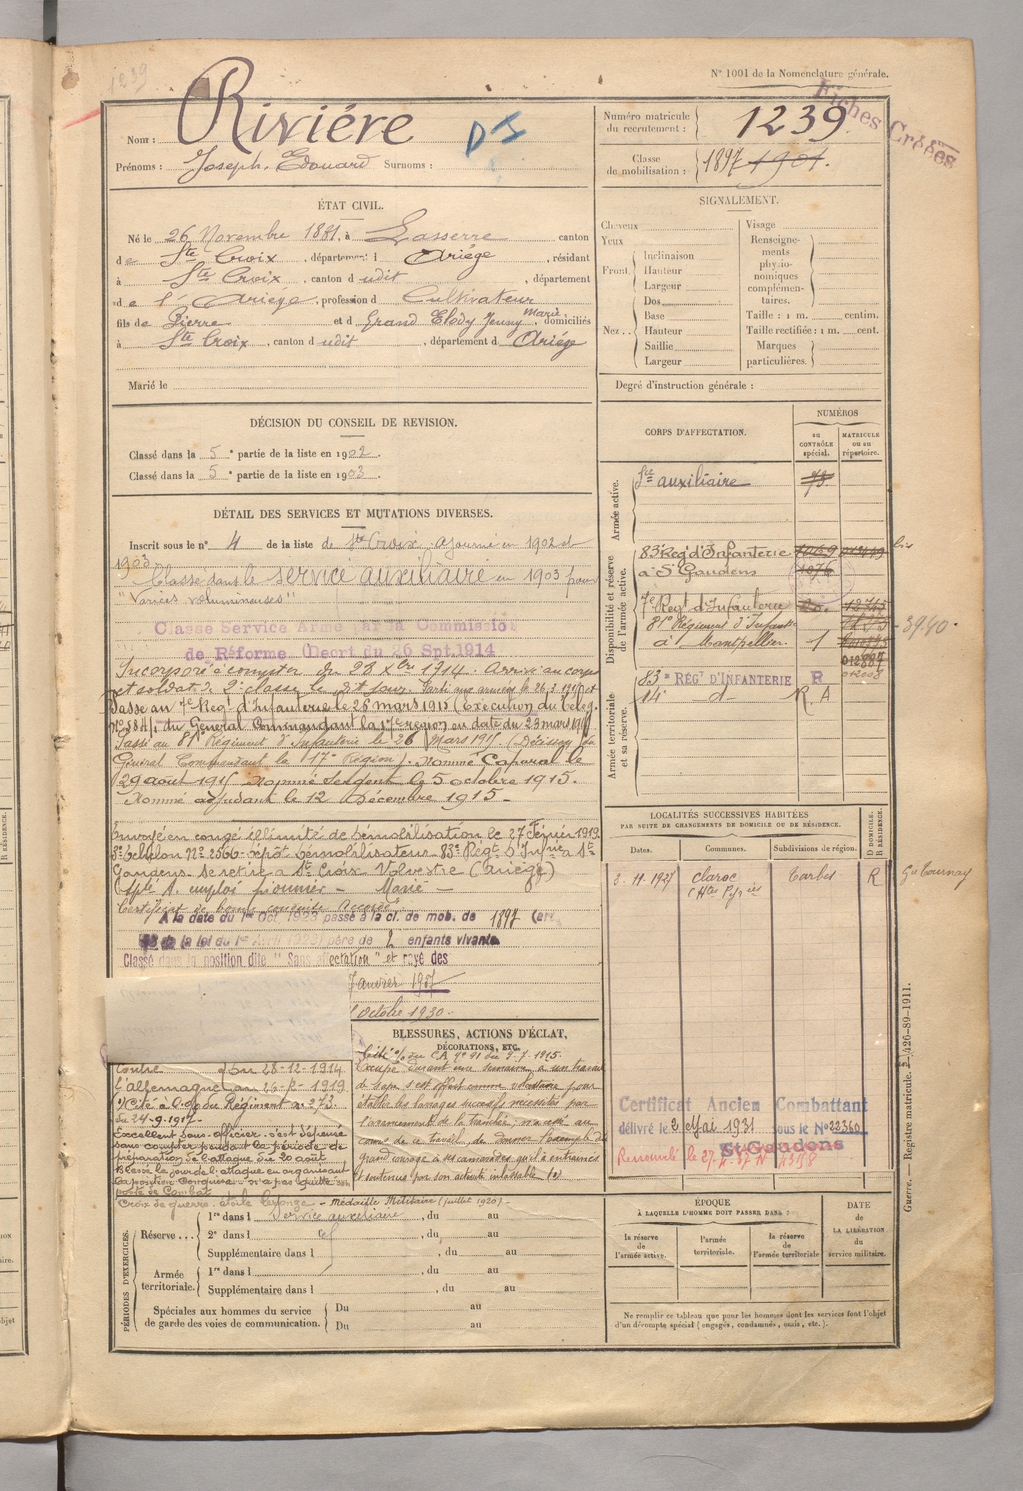 N° 1001 de la Nomenclature générale.
Fiches Créées
1239
Nom : Riviére
D I
Prénoms : Joseph. Edouard Surnoms :
Numéro matricule du recrutement : 1239
Classe de mobilisation : 1897 1901.
ÉTAT CIVIL.
Né le 26 Novembre 1881, à Lasserre canton
de Ste Croix, département d Ariége, résidant
à Ste Croix, canton d udit, département
de l'Ariége, profession d Cultivateur
fils de Pierre et d Grand Elody Jenny Marie, domiciliés
à Ste Croix, canton d udit, département d Ariége
Marié le
SIGNALEMENT.
Cheveux
Yeux
Front. Inclinaison
Hauteur
Largeur
Nez Dos
Base
Hauteur
Saillie
Largeur
Visage
Renseignements physionomiques complémentaires.
Taille : 1 m. centim.
Taille rectifiée : 1 m. cent.
Marques particulières.
Degré d'instruction générale :
DÉCISION DU CONSEIL DE REVISION.
Classé dans la 5e partie de la liste en 1902.
Classé dans la 5e partie de la liste en 1903.
DÉTAIL DES SERVICES ET MUTATIONS DIVERSES.
Inscrit sous le n° 4 de la liste de Ste Croix. Ajourné en 1902 et
1903
Classé dans le service auxiliaire en 1903 pour
"Varices volumineuses"
Classé Service Armé par la Commission
de Réforme (Decrt du 26 Spt. 1914
Incorporé à compter du 28 Xbre 1914. Arrivé au corps
et soldat de 2e classe le dt jour. Parti aux armées le 26.3.1915
Passe au 7e Regt d'Infanterie le 26 mars 1915 (Execution du Teleg.
du Général Commandant la 17e region en date du 23 mars
Passé au 81e Régiment d'Infanterie le 26 Mars 1915 (Décision du
Général Commandant le 17e Région). Nommé Caporal le
29 aout 1915 Nommé Sergent le 5 octobre 1915.
Nommé adjudant le 12 Décembre 1915 -
Envoyé en congé illimité de démobilisation le 27 Février 1919
3e échelon n° 2566 - dépôt démobilisateur 83e Regt d'Infrie à St
Gaudens se retire à Ste Croix Volvestre (Ariège)
emploi pionnier - Marié -
Certificat de bonne conduite Accordé
A la date du 1er Oct. 1923 passé à la cl. de mob. de 1897 (art.
de la loi du 1er Avril 1923) père de 2 enfants vivants
Classé dans la position dite "Sans affectation" et rayé des
Janvier 1927
Octobre 1930.
CORPS D'AFFECTATION.
NUMÉROS
au CONTRÔLE spécial.
MATRICULE ou au répertoire.
Armée active.
Sce auxiliaire 73.
Disponibilité et réserve de l'armée active.
83e Reg d'Infanterie
à St Gaudens 1076
bis
7e Regt d'Infanterie 12745
81e Régiment d'Infantie
à Montpellier 1
39.40
Armée territoriale et sa réserve.
83e RÉGt D'INFANTERIE R
14e - d - R. A
LOCALITÉS SUCCESSIVES HABITÉES
PAR SUITE DE CHANGEMENTS DE DOMICILE OU DE RÉSIDENCE.
Dates. Communes. Subdivisions de région. D DOMICILE. R RÉSIDENCE.
3. 11. 1927 Clarac (Htes Pyrées) Tarbes R Gie Tournay
Certificat Ancien Combattant
délivré le 2 Mai 1931 sous le No 22360
St Gaudens
BLESSURES, ACTIONS D'ÉCLAT, DÉCORATIONS, ETC.
Contre l'allemagne du 28-12-1914
au 1919
Cité à O. du Régiment n° 273
du 24-9-1917 -
Excellent sous-officier - s'est dépensé
sans compter pendant la période de
préparation de l'attaque du 20 août
Blessé le jour de l'attaque en organisant
la position conquise - n'a pas quitté son
poste de combat
Croix de guerre - étoile bronze - Médaille Militaire (juillet 1920) -
Cité du CA n° 91 du 9-7-1915.
Occupé durant une semaine à un travail
de sape s'est offert comme volontaire pour
établir les barrages successifs nécessités par
l'avancement de la tranchée, n'a cessé au
cours de ce travail, de donner l'exemple du
grand courage à ses camarades qu'il a entrainés
et soutenus par son activité inlassable
PÉRIODES D'EXERCICES.
Réserve ... 1re dans l service auxiliaire, du au
2e dans l, du au
Supplémentaire dans l, du au
Armée territoriale. 1re dans l, du au
Supplémentaire dans l, du au
Spéciales aux hommes du service de garde des voies de communication. Du au
Du au
ÉPOQUE
À LAQUELLE L'HOMME DOIT PASSER DANS :
la réserve de l'armée active.
l'armée territoriale.
la réserve de l'armée territoriale
DATE de LA LIBÉRATION du service militaire.
Ne remplir ce tableau que pour les hommes dont les services font l'objet
d'un décompte spécial (engagés, condamnés, omis, etc.).
Guerre. — Registre matricule. 426-89-1911.